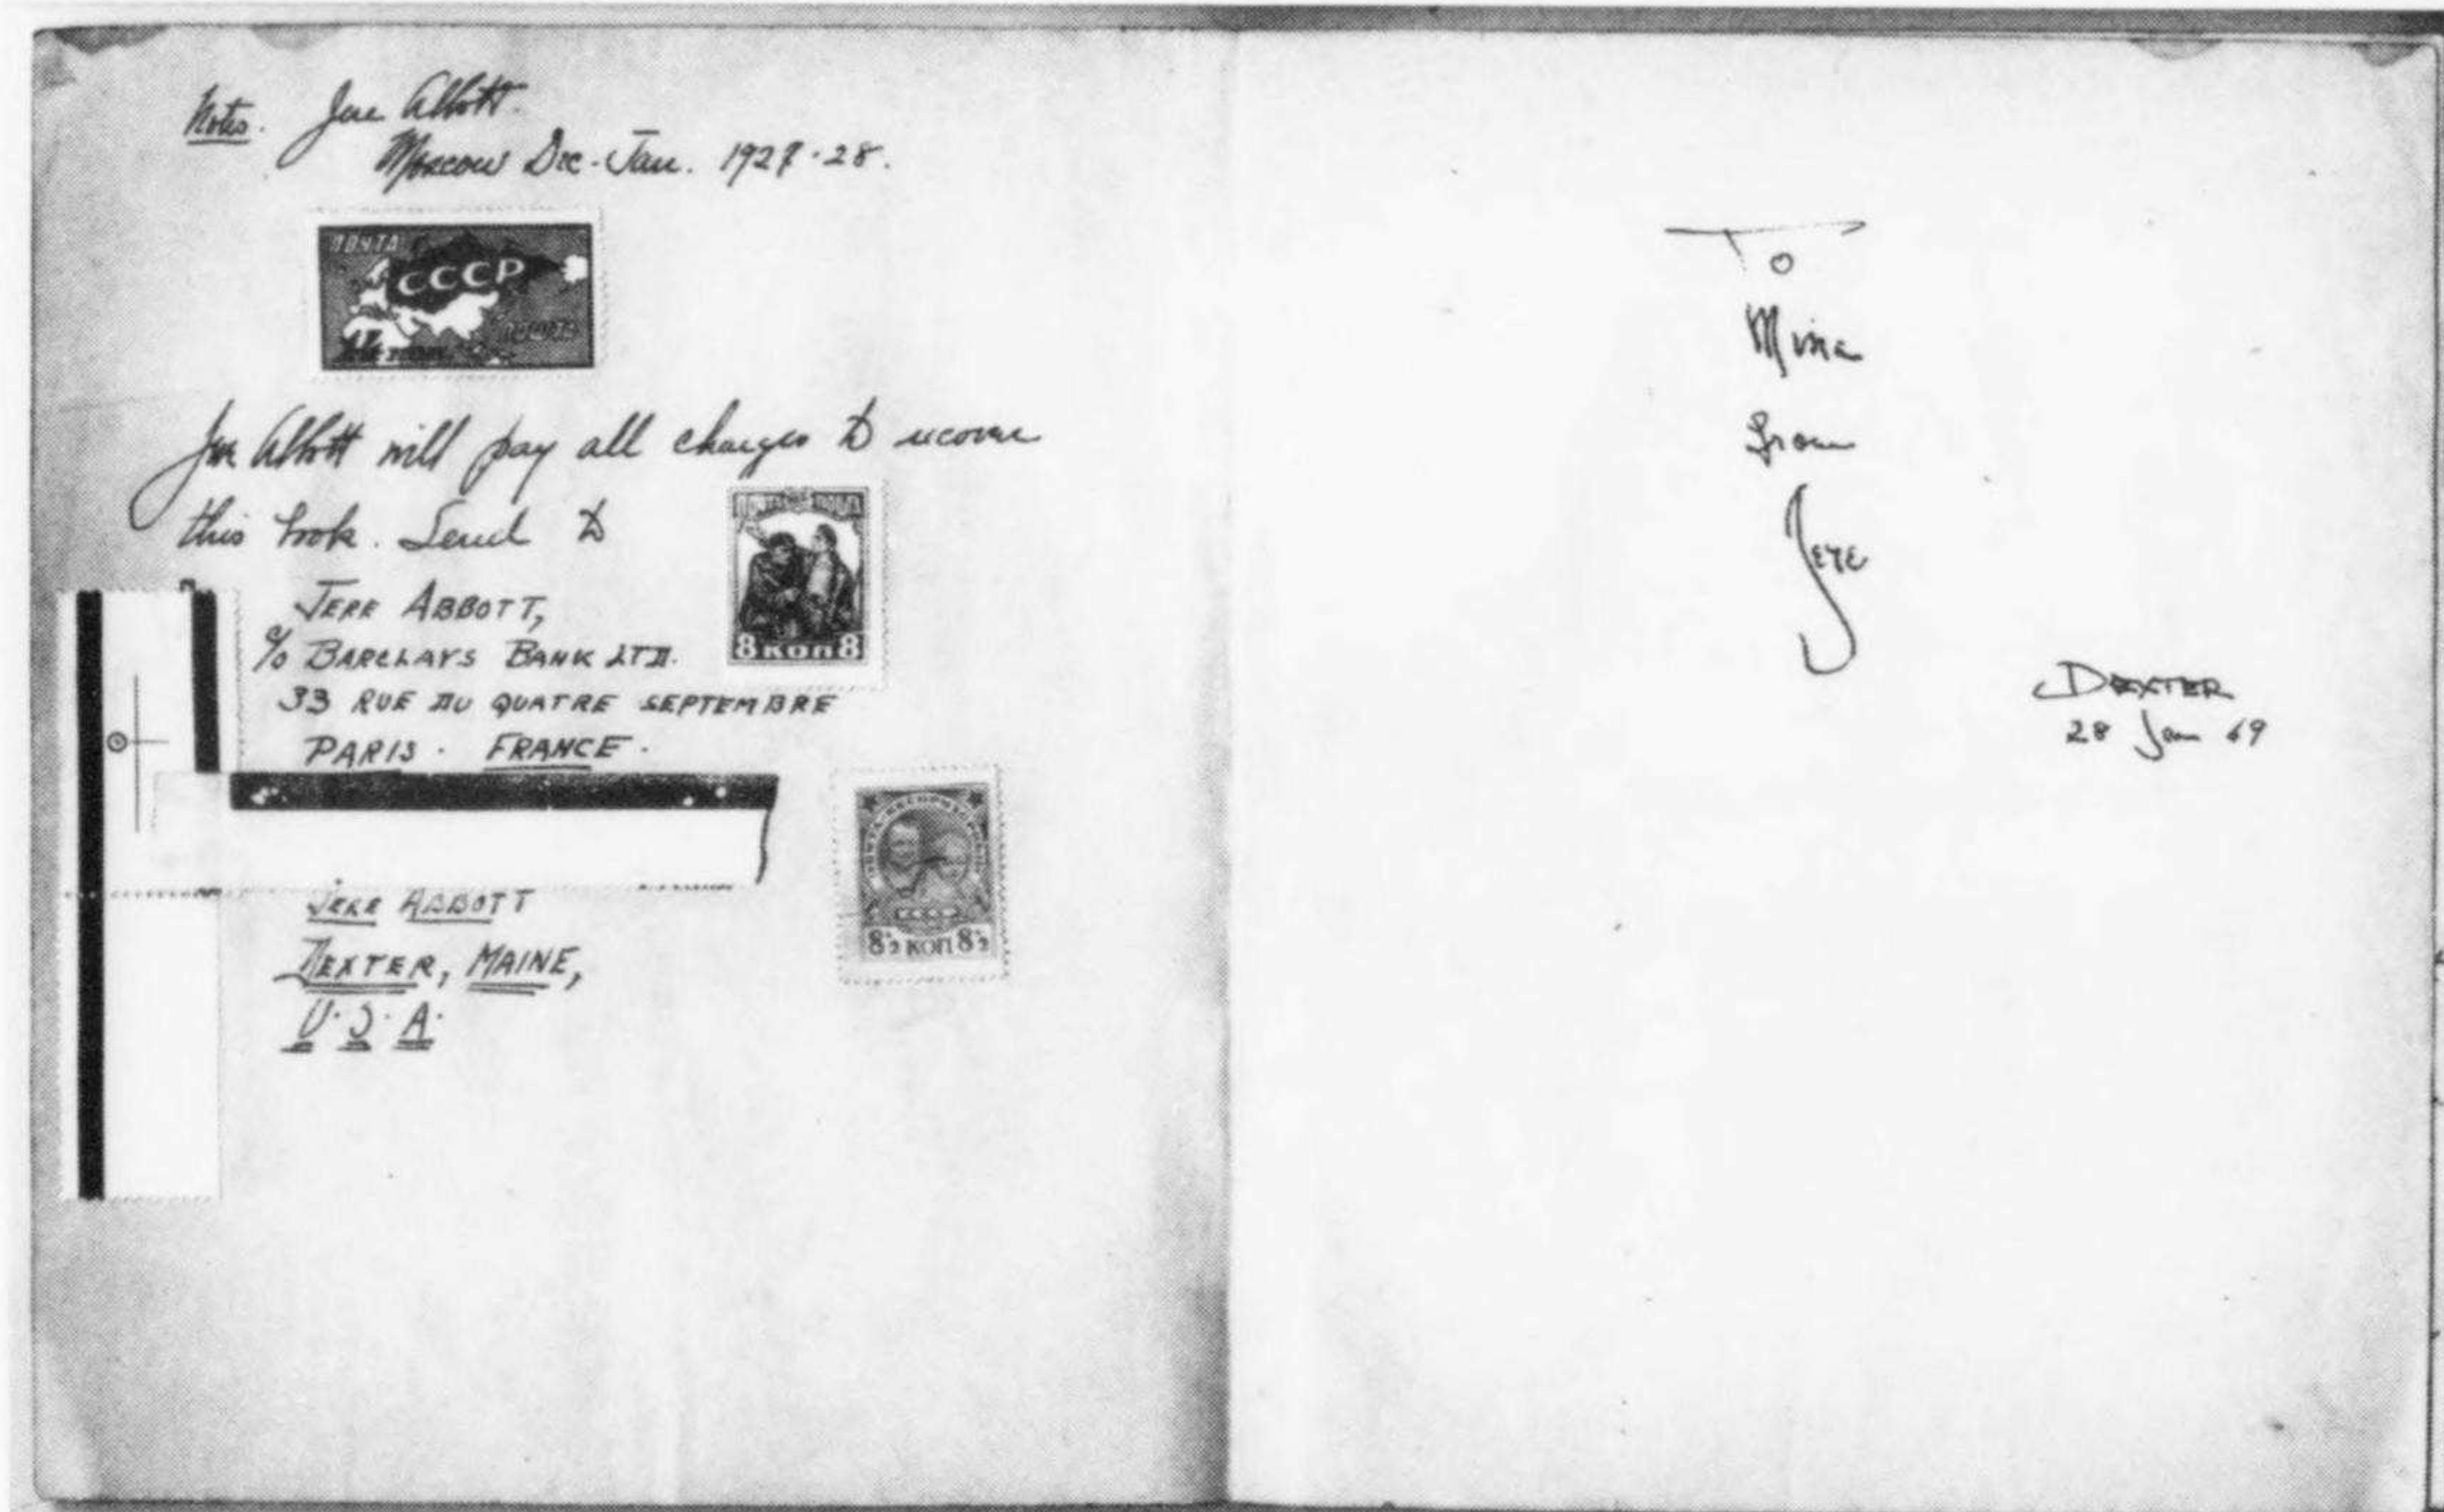 Notes. Jere Abbott.
Moscow Dec-Jan. 1927-28.
ПОЧТА
СССР
Jere Abbott will pay all charges to recover
this book. Send to
JERE ABBOTT,
c/o BARCLAYS BANK LTD.
33 RUE DU QUATRE SEPTEMBRE
PARIS. FRANCE.
8 КОП 8
JERE ABBOTT
DEXTER, MAINE,
U.S.A.
СССР
8½ КОП 8½
To
Mina
from
Jere
DEXTER
28 Jan 69